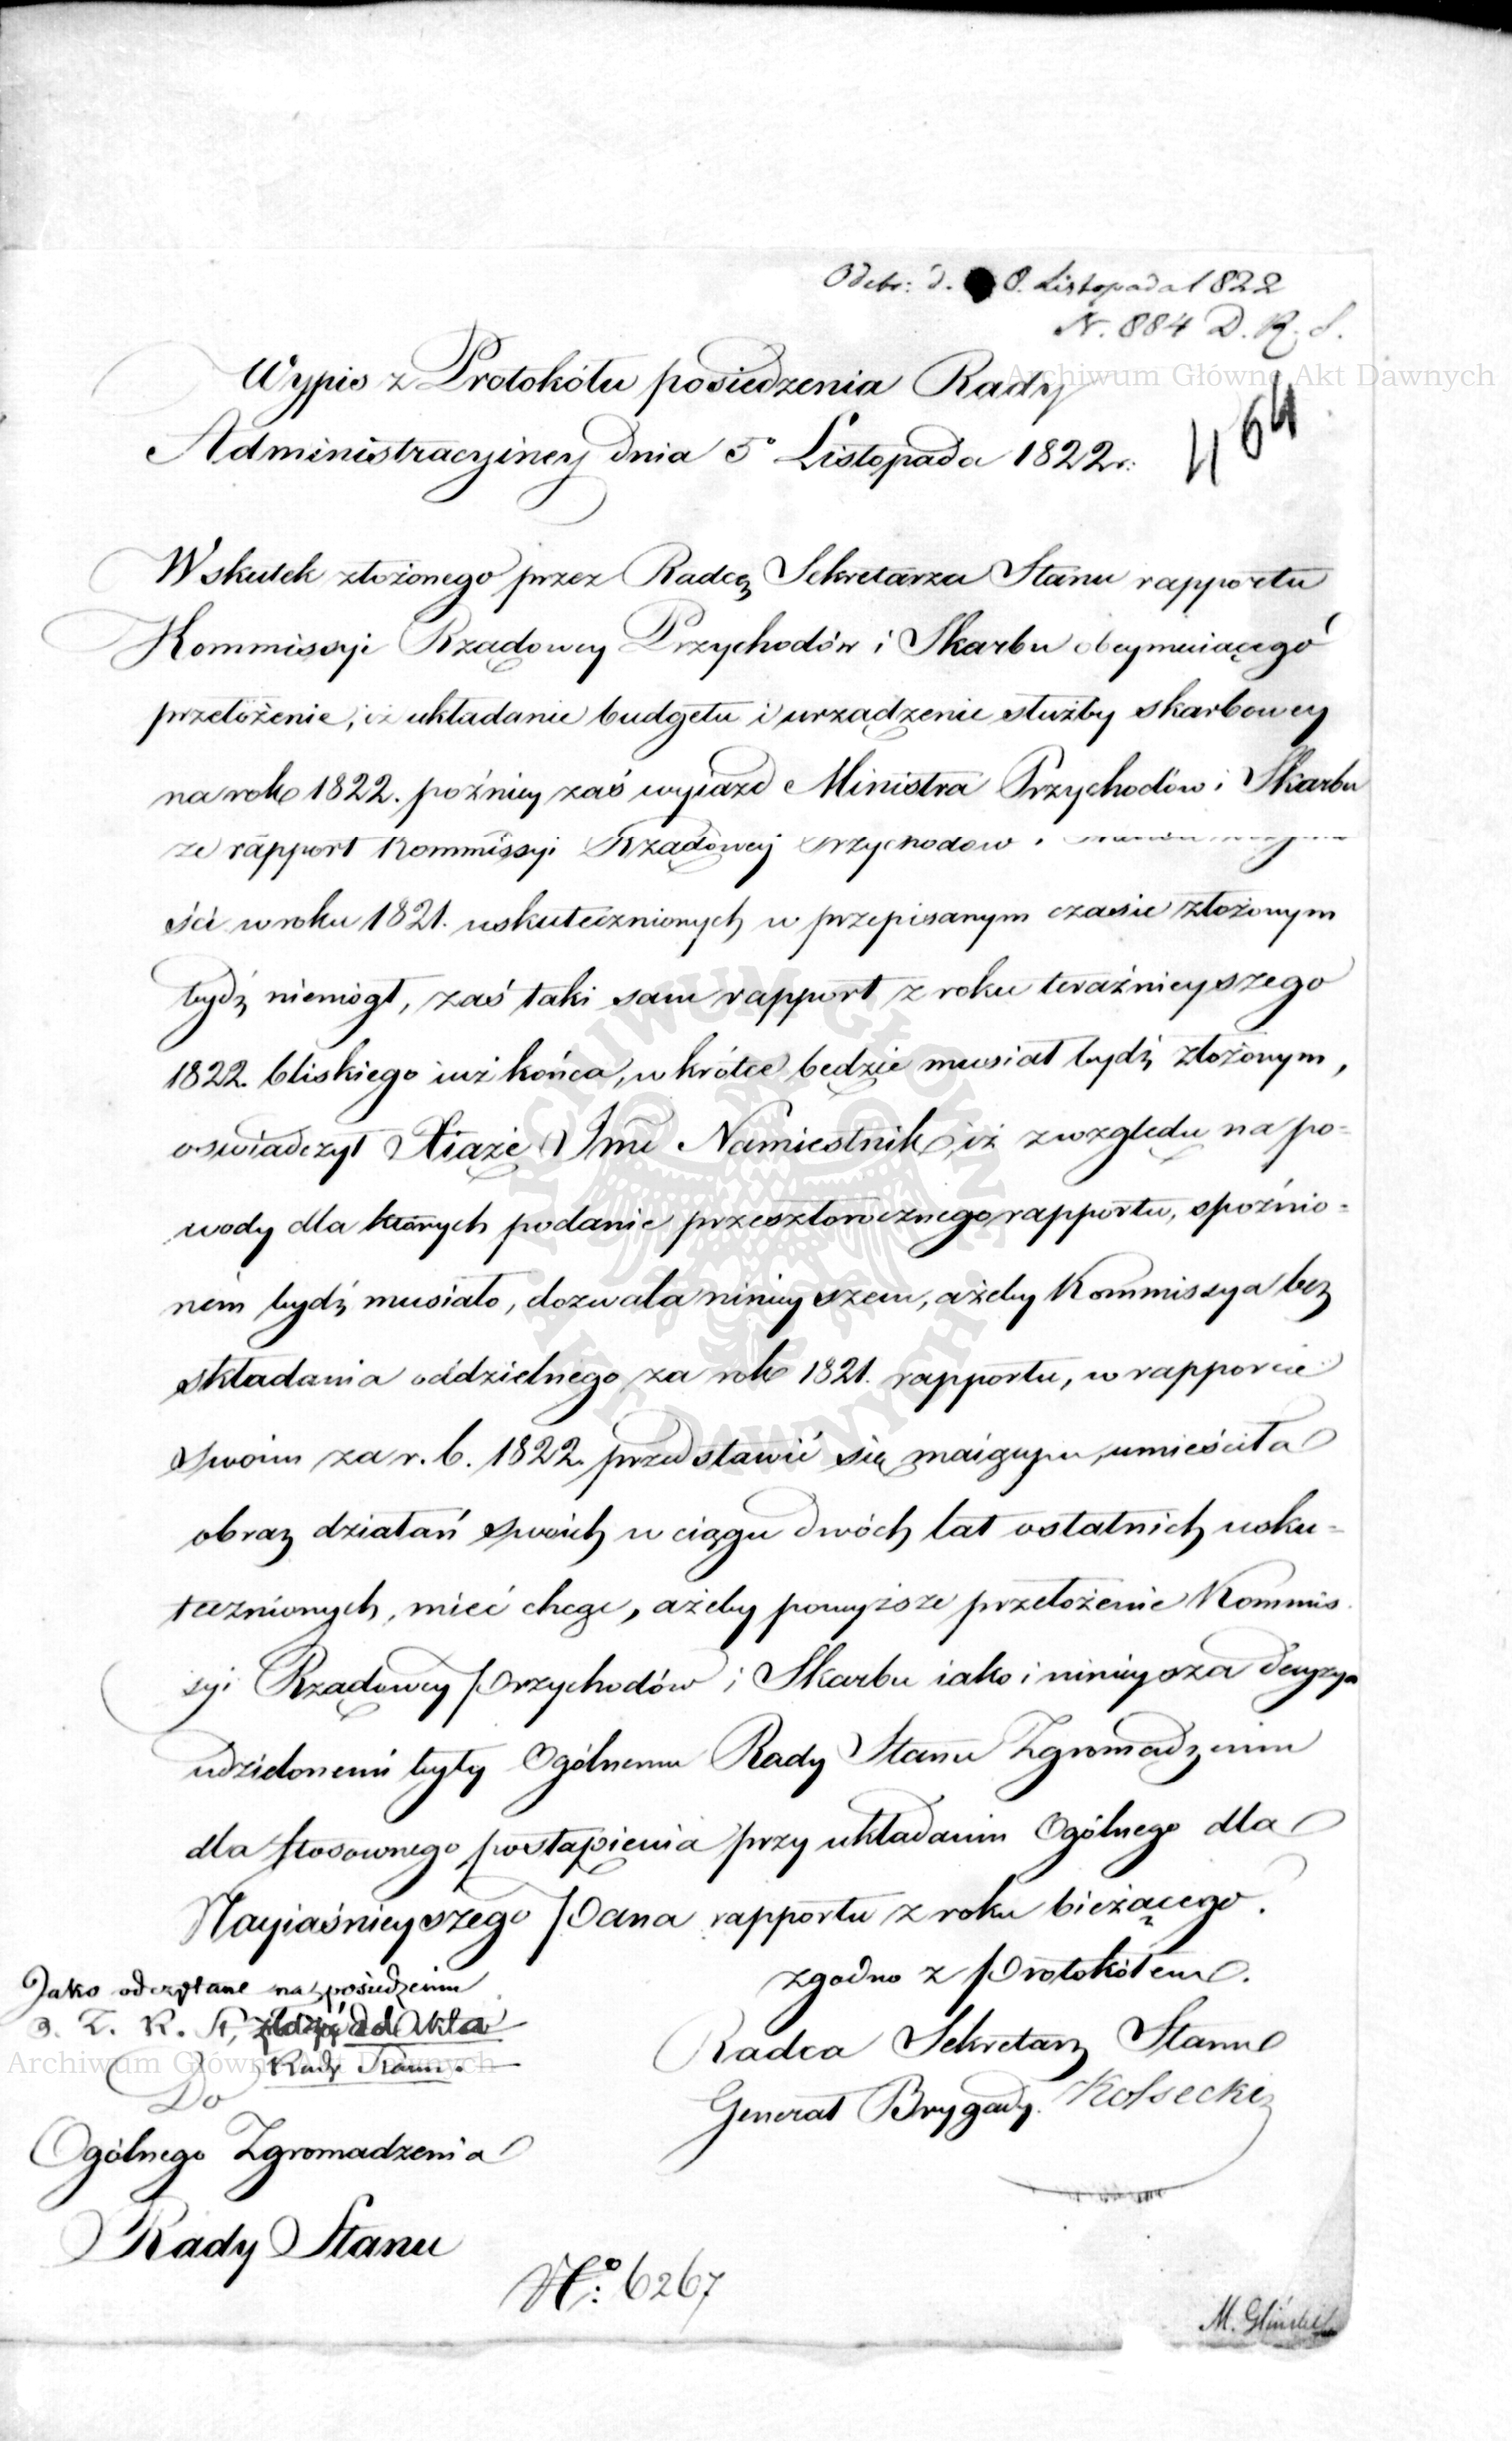 Odebr: d. 8. Listopada 1822
N. 884 D. R. S.
Archiwum Główne Akt Dawnych
464
Wypis z Protokółu posiedzenia Rady
Administracyiney dnia 5º Listopada 1822 r.
Wskutek złożonego przez Radcę Sekretarza Stanu rapportu
Kommissyi Rządowey Przychodów i Skarbu obeymuiącego
przełożenie, iż układanie budgetu i urządzenie służby skarbowey
na rok 1822. poźniey zaś wyiazd Ministra Przychodów i Skarbu
że rapport Kommissyi Rządowey Przychodów i
ści w roku 1821. uskutecznionych w przepisanym czasie złożonym
bydź niemógł, zaś taki sam rapport z roku teraźnieyszego
1822. bliskiego iuż końca, wkrótce będzie musiał bydź złożonym,
oświadczył Xiąże Jmć Namiestnik, iż z względu na po=
wody dla których podanie przeszłorocznego rapportu, spoźnio=
ném bydź musiało, dozwala ninieyszem, ażeby Kommissya bez
składania oddzielnego za rok 1821. rapportu, w rapporcie
swoim za r. b. 1822. przedstawić się maiącym, umieściła
obraz działań swoich w ciągu dwóch lat ostatnich usku=
tecznionych, mieć chcąc, ażeby powyższe przełożenie Kommis
syi Rządowey Przychodów i Skarbu iako i ninieysza decyzya
udzielonemi były Ogólnemu Rady Stanu Zgromadzeniu
dla stosownego postąpienia przy układaniu Ogólnego dla
Nayiaśnieyszego Pana rapportu z roku bieżącego.
zgodno z Protokółem.
Radca Sekretarz Stanu
Generał Brygady. Kossecki
Jako odczytane na posiedzeniu
O. Z. R. St. złożyć do Akta
Rady Stanu.
Archiwum Główne Akt Dawnych
Do
Ogólnego Zgromadzenia
Rady Stanu
Nº: 6267
M. Gliński
ARCHIWUM GŁÓWNE AKT DAWNYCH